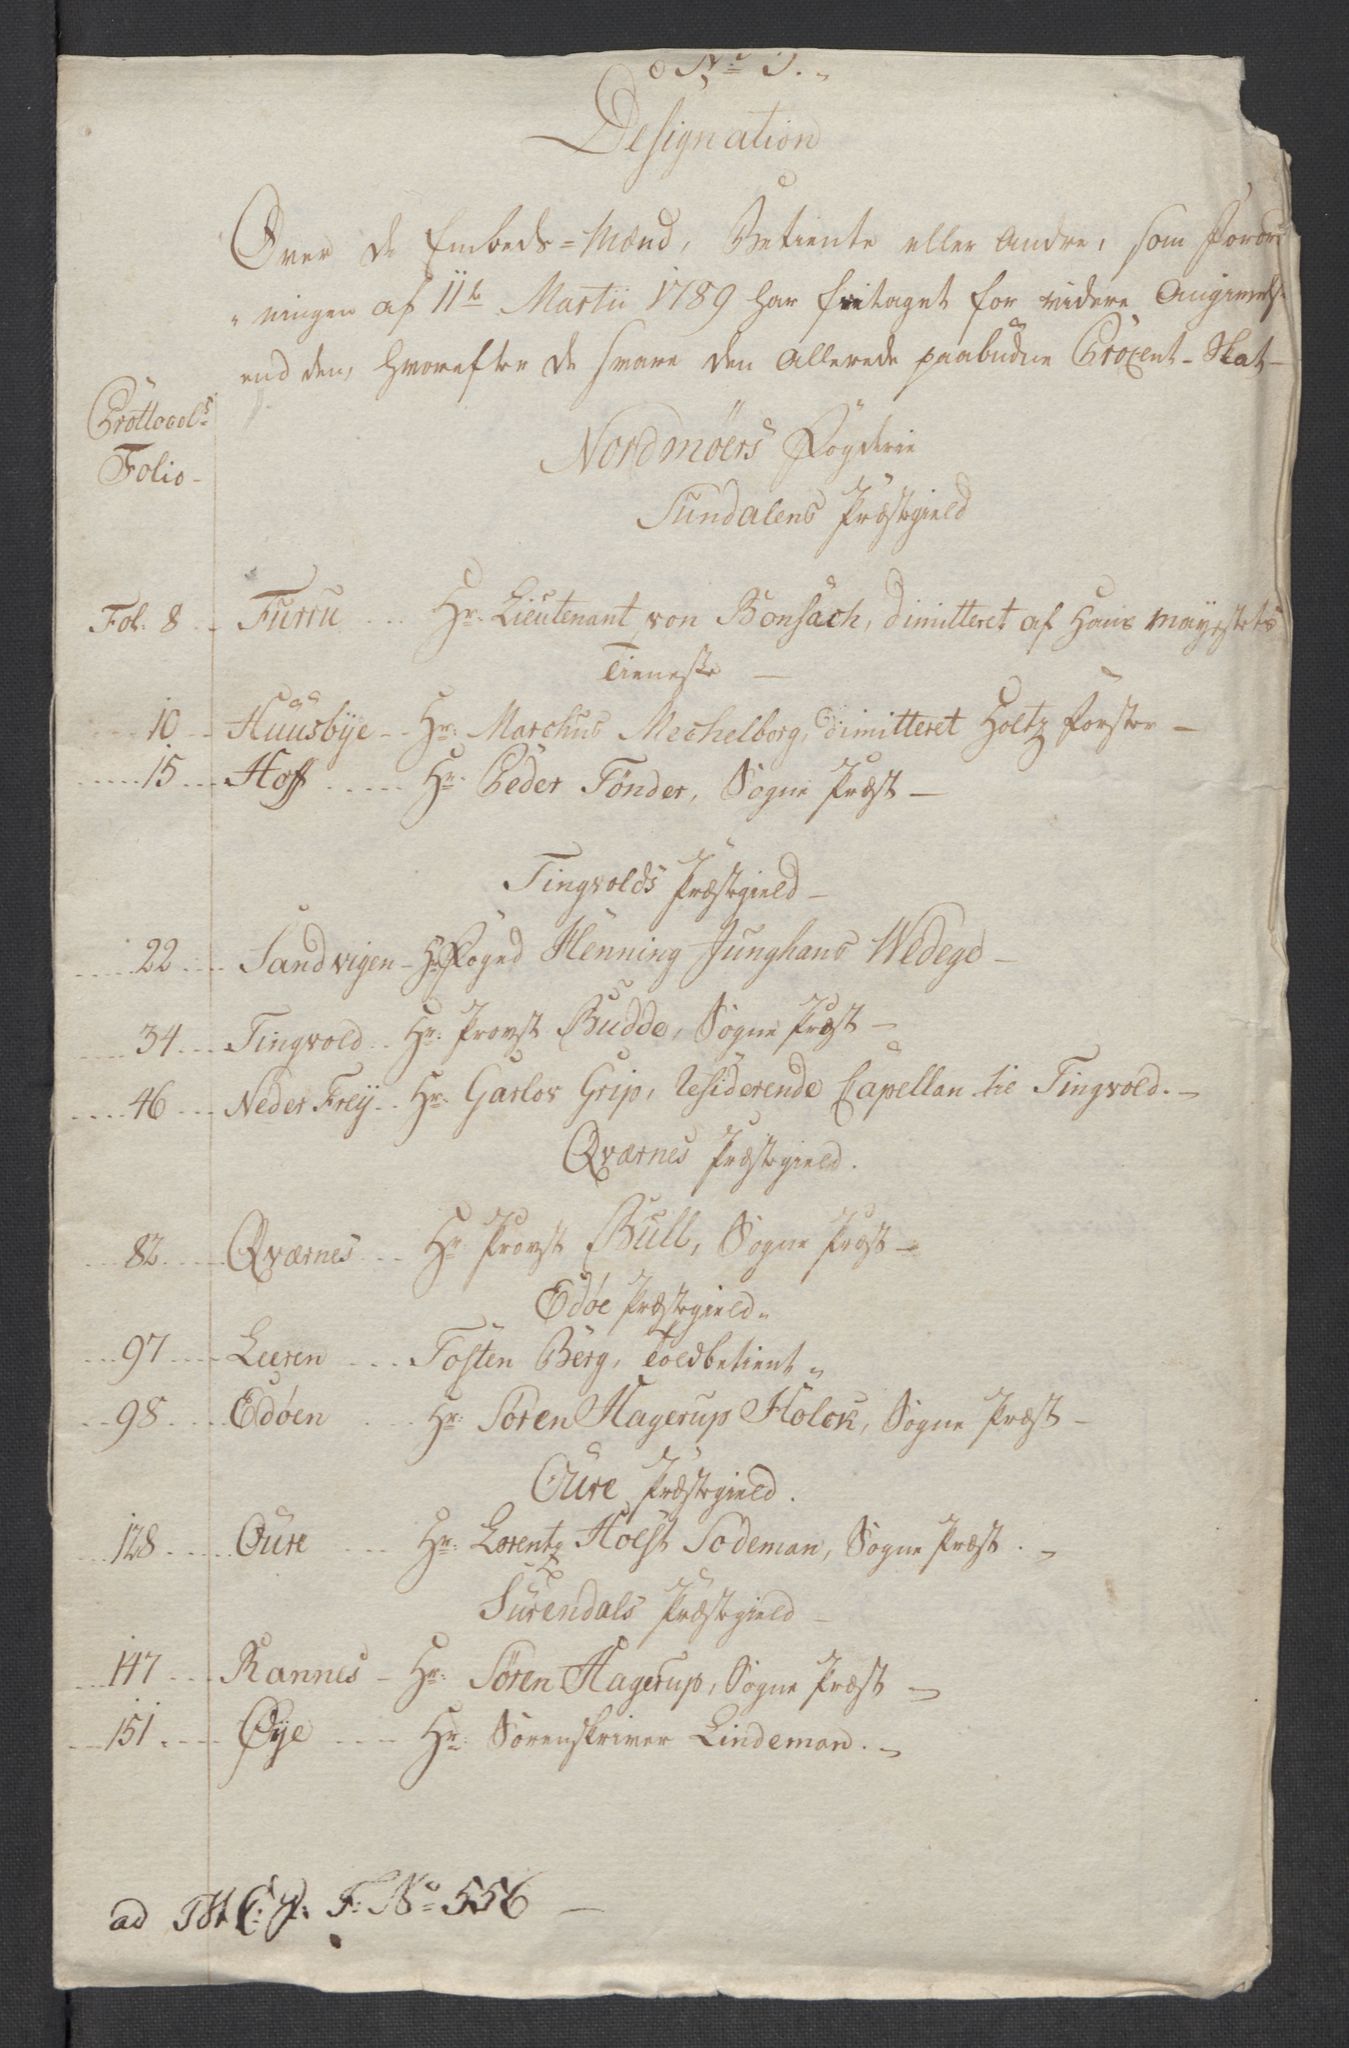 No 3.
Designation
Over de Embeds=Mænd, Betiente eller Andre, som Forord
ningen af 11te Martii 1789 har fritaget for videre Angivelse
end den, hvorefter de svare den allerede paabudne Procent-Skat-
Prottocol:s
Folio-
Nordmøers Fogderie
Sundalens Præstegield
Fol. 8 Furru Hr: Lieutenant von Bonsach, dimitteret af Hans Mayestets
Tieneste
10 Huusbÿe Hr: Marchus Mechelborg, dimitteret Holtz Forster
15 Hoff Hr: Peder Tønder, Sogne Præst
Tingvolds Præstegield
22 Sandvigen Hr Foged Henning Junghans Wedege
34 Tingvold Hr: Provst Budde, Sogne Præst
46 Neder Freÿ Hr: Garlov Grip, Residerende Capellan til Tingvold.
Qværnes Præstegield.
82 Qværnes Hr Provst Bull, Sogne Præst
Edøe Præstegield
97 Leeren Tosten Berg, Toldbetient
98 Edøen Hr: Søren Hagerup Holck, Sogne Præst
Oure Præstegield.
128 Oure Hr: Lorentz Holst Sodeman, Sogne Præst.
Surendals Præstegield
147 Rannes Hr: Søren Hagerup, Sogne Præst
151 Øÿe Hr: Sorenskriver Lindeman.
ad F: No 556